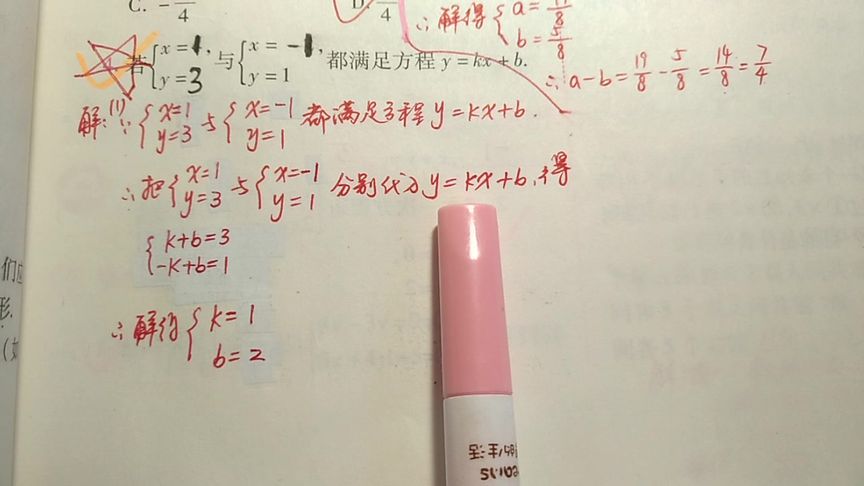 C. -
4
D.
4
∴解得{a=19/8
b=5/8
∴a-b=19/8-5/8=14/8=7/4
若{x=1, y=3 与{x=-1, y=1 都满足方程 y=kx+b.
解:(1)∵{x=1 y=3 与{x=-1 y=1 都满足方程 y=kx+b.
∴把{x=1 y=3 与{x=-1 y=1 分别代入y=kx+b,得
{k+b=3
-k+b=1
∴解得{k=1
b=2
们
形.